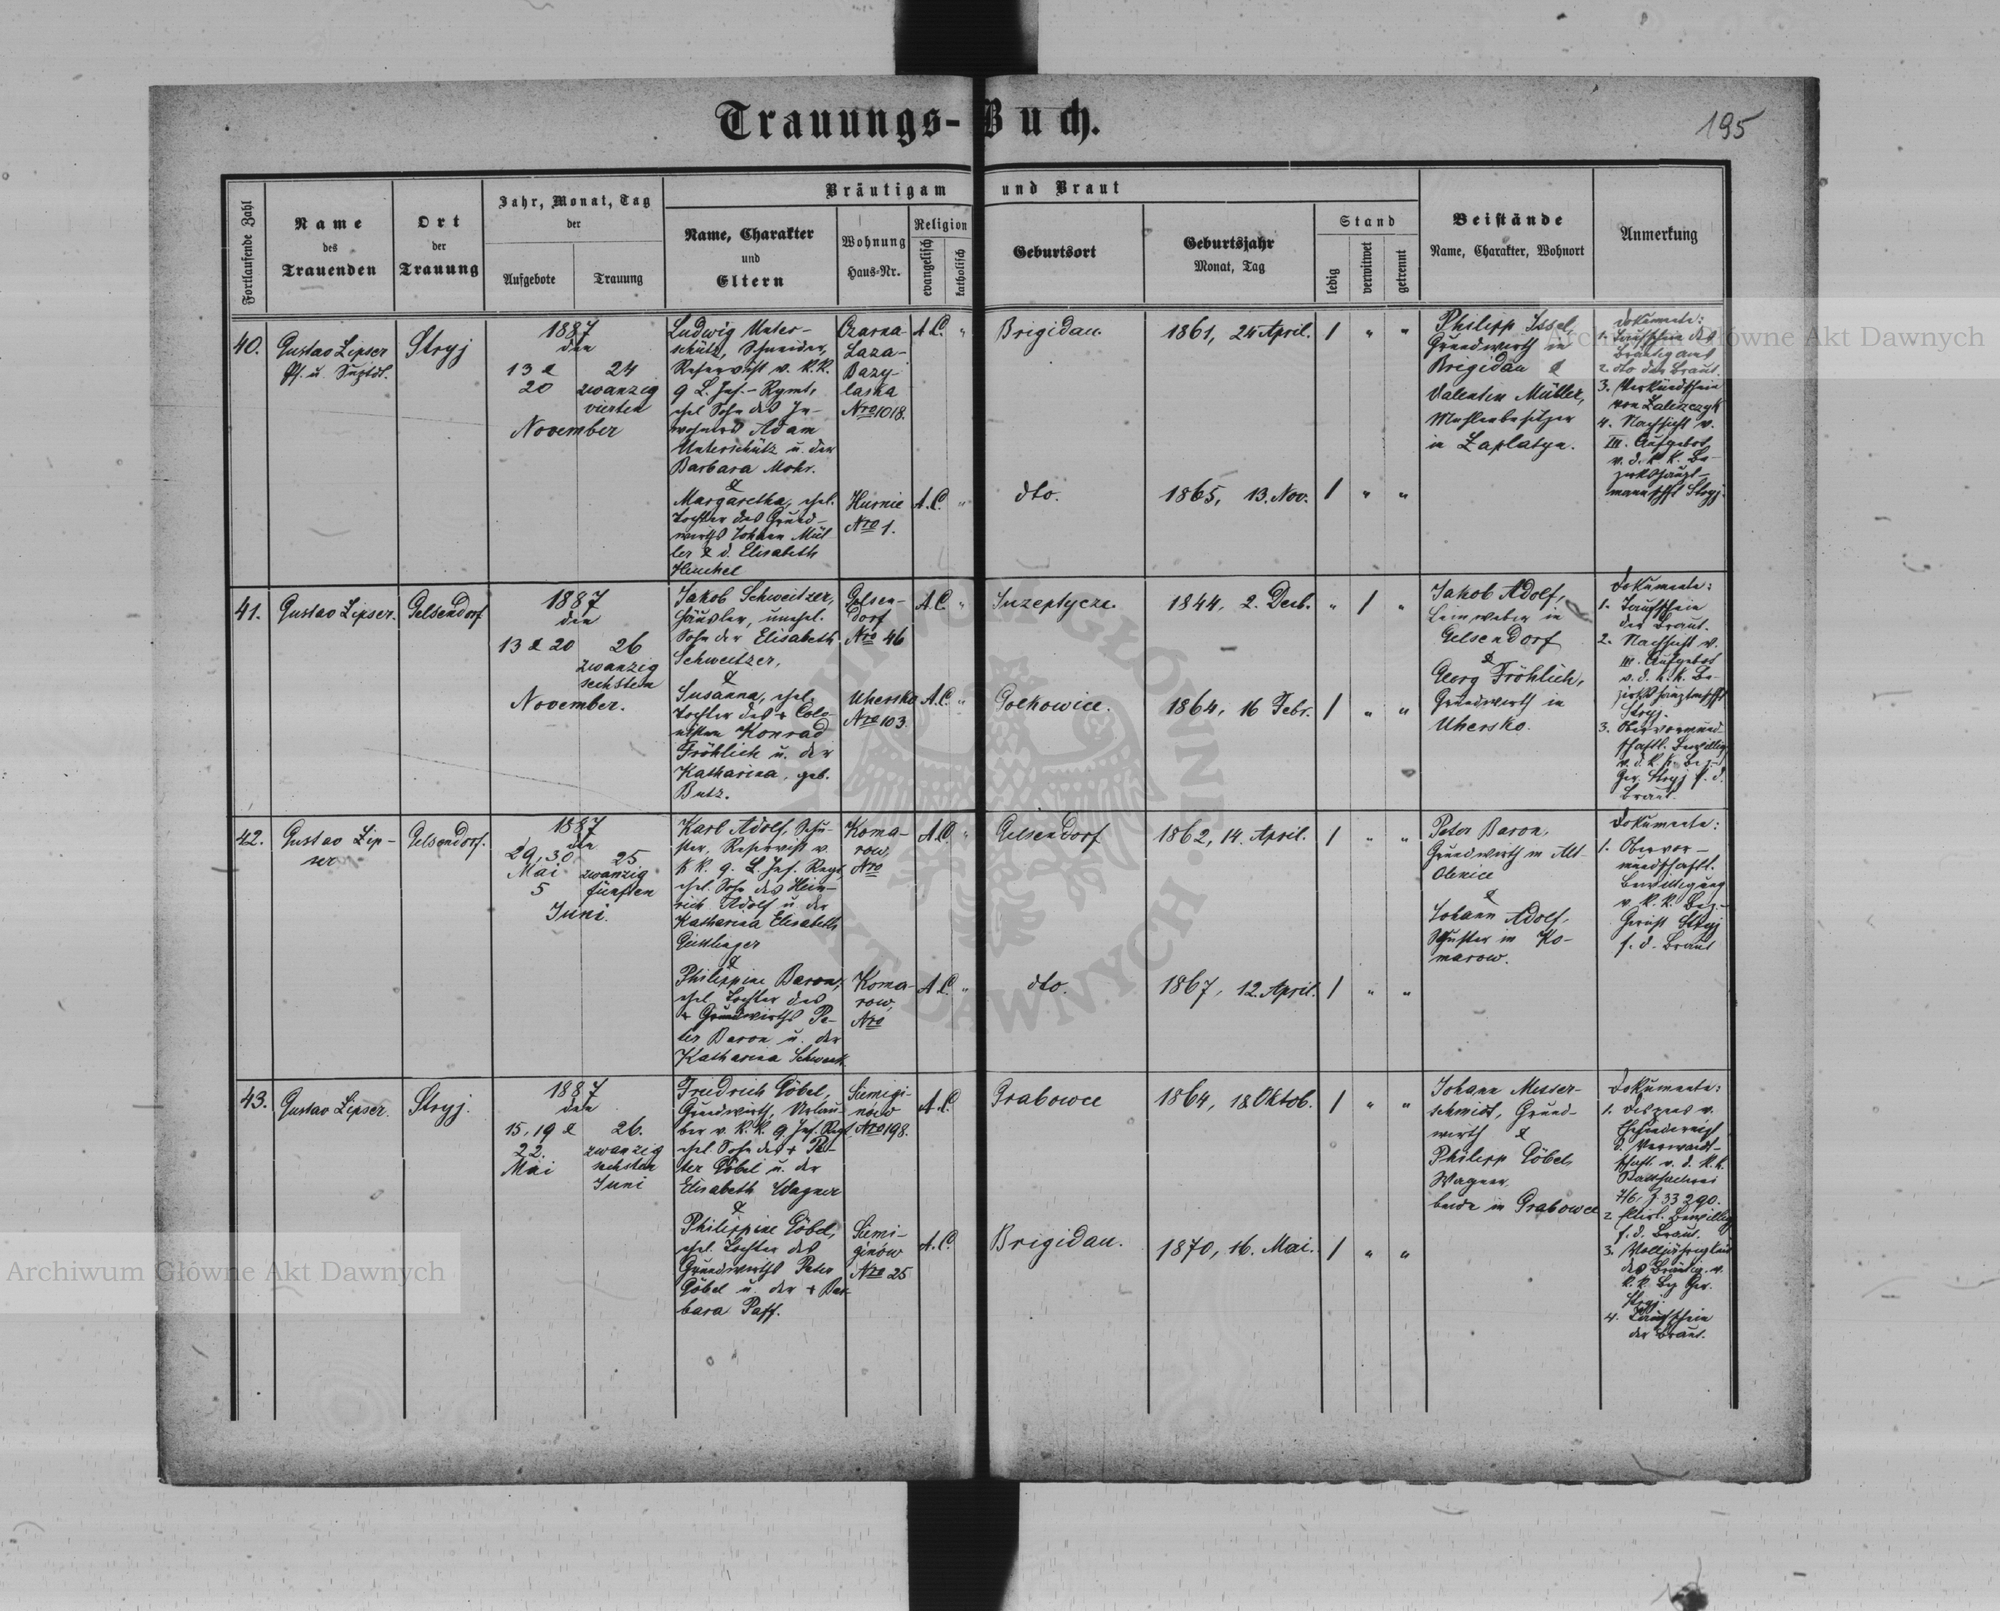 Trauungs-Buch.
195
Fortlaufende Zahl
Name
des
Trauenden
Ort
der
Trauung
Jahr, Monat, Tag
der
Aufgebote
Trauung
Bräutigam und Braut
Name, Charakter
und
Eltern
Wohnung
Haus-Nr.
Religion
evangelisch
katholisch
Geburtsort
Geburtsjahr
Monat, Tag
Stand
ledig
verwitwet
getrennt
Beistände
Name, Charakter, Wohnort
Anmerkung
40.
Gustav Lipser
Stryj
1887
den
13 &
20
24
zwanzig
vierten
November
Ludwig Unter-
schütz, Schneider,
Reservist v. k.k.
9 L. Inf.-Rgmt,
ehel. Sohn des In-
wohners Adam
Unterschütz u. der
Barbara Mohr.
&
Margaretha, ehel.
Tochter des Grund-
wirths Johann Mül-
ler & d. Elisabeth
Heuchel
Czarna-
Laza-
Bazy-
laska
Nro 1018.
Hurnie
Nro 1.
A.C. "
A.C. "
Brigidau.
dto.
1861, 24 April.
1865, 13. Nov.
/ " "
/ " "
Philipp Issel,
Grundwirth in
Brigidau &
Valentin Müller,
Muhlenbesitzer
in Zaplatyn.
Dokumente:
1. Taufschein des
Bräutigams
2. dto der Braut.
3. Verkündschein
von Zaleszczyk
4. Nachsicht v.
III. Aufgebot
v. d. k. k. Be-
zirkshaupt-
mannschft Stryj.
41.
Gustav Lipser.
Gelsendorf
1887
den
13 & 20
26
zwanzig
sechsten
November.
Jakob Schweitzer,
Häusler, unehel.
Sohn der Elisabeth
Schweitzer,
&
Susanna, ehel.
Tochter des + Colo-
nisten Konrad
Fröhlich u. der
Katharina, geb.
Butz.
Gelsen-
dorf
Nro 46
Uhersko
Nro 103.
A.C. "
A.C. "
1844, 2. Dezb.
1864, 16 Febr.
" / "
/ " "
Jakob Adolf,
Leinweber in
Gelsendorf
&
Georg Fröhlich,
Grundwirth in
Uhersko.
Dokumente:
1. Taufschein
der Braut.
2. Nachsicht v.
III. Aufgebot
v. d. k. k. Be-
Stryj.
3. Obervormund-
schaftl. Bewillig.
v. d. k. k. Bez.-
Ger. Stryj f. d.
Braut.
42.
Gustav Lip-
ser
Gelsendorf.
1887
den
29, 30
Mai
5
25
zwanzig
fünften
Juni.
Karl Adolf, Schu-
ster, Reservist v.
k k. 9. L. Inf. Regt,
ehel. Sohn des Hein-
rich Adolf u. der
Katharina Elisabeth
&
Philippine Baron,
ehel. Tochter des
+ Grundwirths Pe-
ter Baron u. der
Katharina Schwenk
Koma-
row,
Nro
Koma-
row,
Nro
A.C. "
A.C. "
Gelsendorf
dto.
1862, 14. April.
1867, 12. April.
/ " "
/ " "
Peter Baron,
Grundwirth in Alt-
Olenice
&
Johann Adolf,
Schuster in Ko-
marow.
Dokumente:
1. Obervor-
mundschaftl.
Bewilligung
v. k. k. Bez.-
Gericht Stryj
f. d. Braut
43.
Gustav Lipser.
Stryj.
1887
den
15, 19 &
22.
Mai
26.
zwanzig
sechsten
Juni
Friedrich Göbel,
Grundwirth, Urlau-
ber v. k. k. 9. Inf. Regt,
ehel. Sohn des + Pe-
ter Göbel u. der
Elisabeth Wagner
&
Philippine Göbel,
ehel. Tochter des
Grundwirths Peter
Göbel u. der + Bar-
bara Paff.
Siemigi-
nów
Nro 198.
Siemi-
ginów
Nro 25
A.C.
A.C.
Grabowce
Brigidau.
1864, 18 Oktob.
1870, 16. Mai.
/ " "
/ " "
Johann Messer-
schmidt, Grund-
wirth &
Philipp Göbel,
Wagner,
beide in Grabowce
Dokumente:
1. Dispens v.
d. Verwandt-
schaft v. d. k. k.
Statthalterei
7/6, Z 33290.
f. d. Braut.
3. Volljährigkeit
des Bräutig. v.
k. k. Bez Ger.
Stryj.
4. Taufschein
der Braut.
Archiwum Główne Akt Dawnych
Archiwum Główne Akt Dawnych
ARCHIWUM GŁÓWNE AKT DAWNYCH